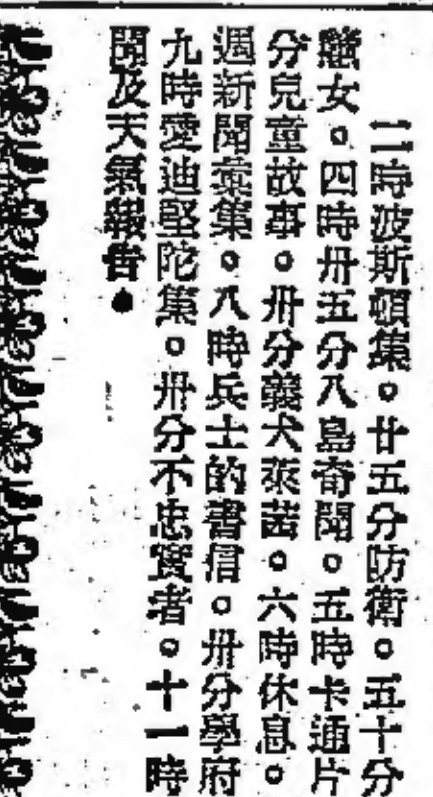 二時波斯頓集。廿五分防衛。五十分
戇女。四時卅五分八島奇聞。五時卡通片
分兒童故事。卅分義犬萊茜。六時休息。
週新聞彙集。八時兵士的書信。卅分學府
九時愛迪堅陀集。卅分不忠實者。十一時
聞及天氣報告●